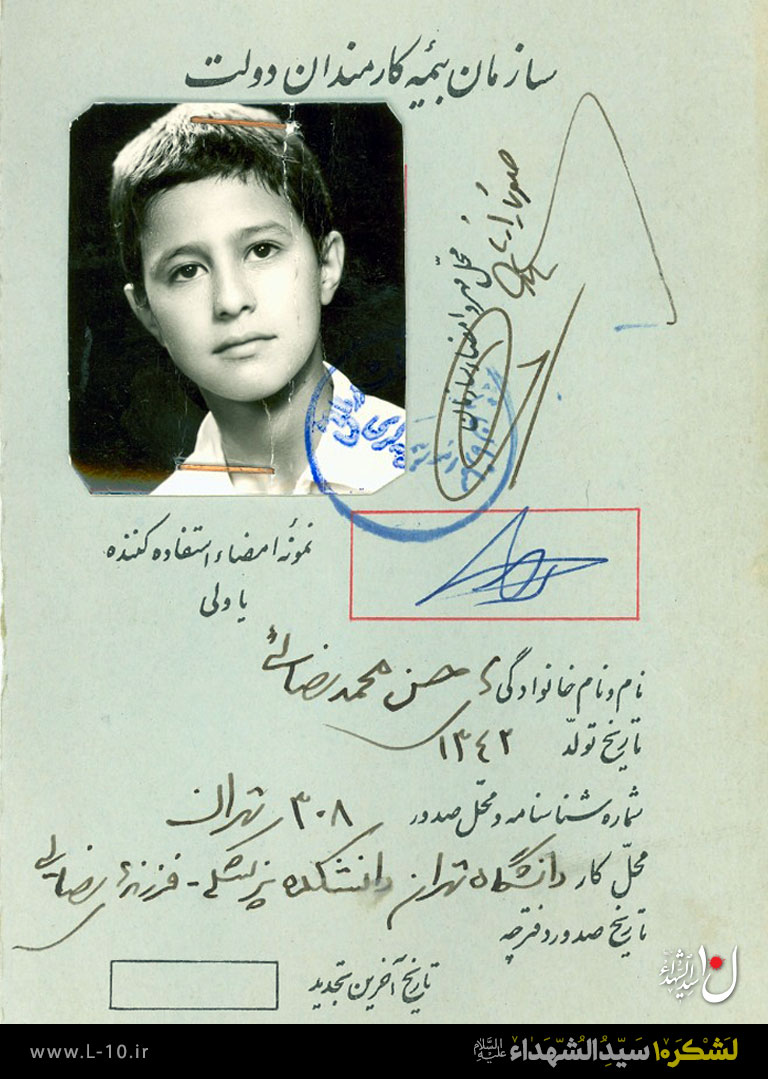 سازمان بیمه کارمندان دولت
محل مهر و امضاء سازمان
نمونه امضاء استفاده کننده
یا ولی
نام و نام خانوادگی حسن محمد رضائی
تاریخ تولد ۱۳۴۲
شماره شناسنامه و محل صدور ۳۰۸ تهران
محل کار دانشگاه تهران دانشکده پزشکی - فرزند رضائی
تاریخ صدور دفترچه
تاریخ آخرین تجدید
سیدالشهداء
www.L-10.ir
لشکر۱۰ سیدالشهداء علیه السلام